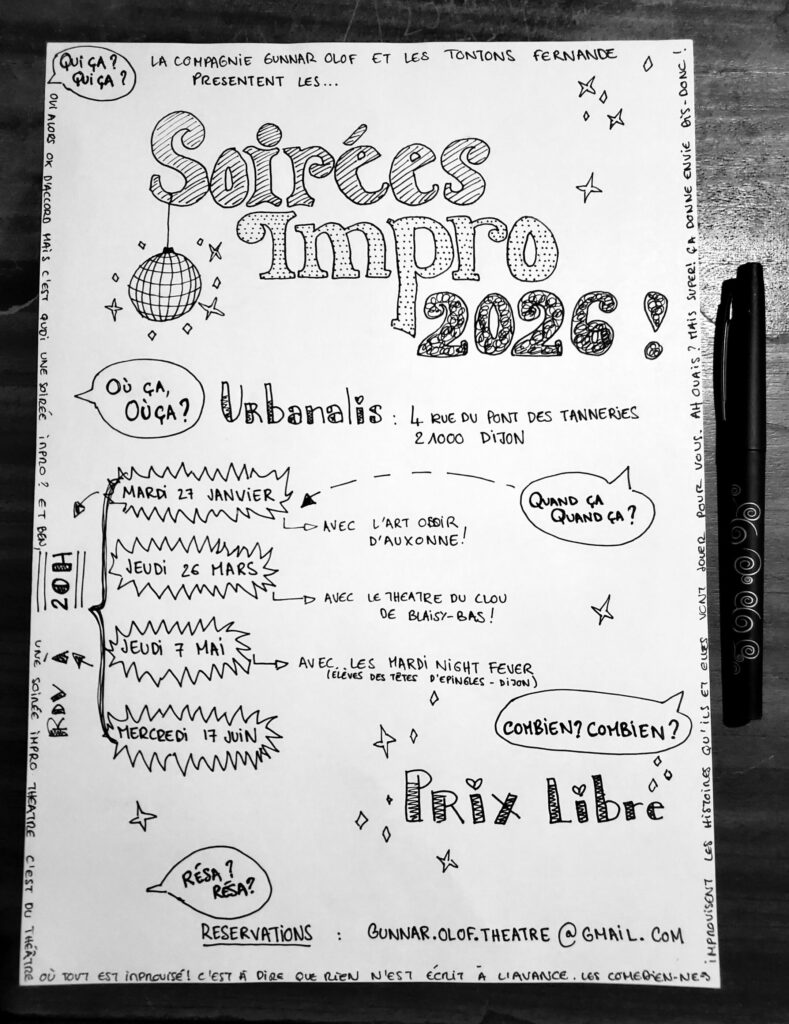 QUI ÇA ?
QUI ÇA ?
LA COMPAGNIE GUNNAR OLOF ET LES TONTONS FERNANDE
PRESENTENT LES...
Soirées
Impro
2026 !
OÙ ÇA,
OÙ ÇA ?
Urbanalis : 4 RUE DU PONT DES TANNERIES
21000 DIJON
QUAND ÇA
QUAND ÇA ?
RDV À 20H
MARDI 27 JANVIER
AVEC L'ART OSOIR
D'AUXONNE !
JEUDI 26 MARS
AVEC LE THEATRE DU CLOU
DE BLAISY-BAS !
JEUDI 7 MAI
AVEC LES MARDI NIGHT FEVER
(ELÈVES DES TÊTES D'EPINGLES - DIJON)
MERCREDI 17 JUIN
COMBIEN ? COMBIEN ?
PRix Libre
RÉSA ?
RÉSA ?
RESERVATIONS : GUNNAR.OLOF.THEATRE@GMAIL.COM
OUI ALORS OK D'ACCORD MAIS C'EST QUOI UNE SOIRÉE IMPRO ? ET BEN, UNE SOIRÉE IMPRO THEATRE C'EST DU THÉÂTRE
OÙ TOUT EST IMPROVISÉ ! C'EST À DIRE QUE RIEN N'EST ÉCRIT À L'AVANCE. LES COMEDIEN-NES
IMPROVISENT LES HISTOIRES QU'ILS ET ELLES VONT JOUER POUR VOUS. AH OUAIS ? MAIS SUPER ! ÇA DONNE ENVIE DIS-DONC !